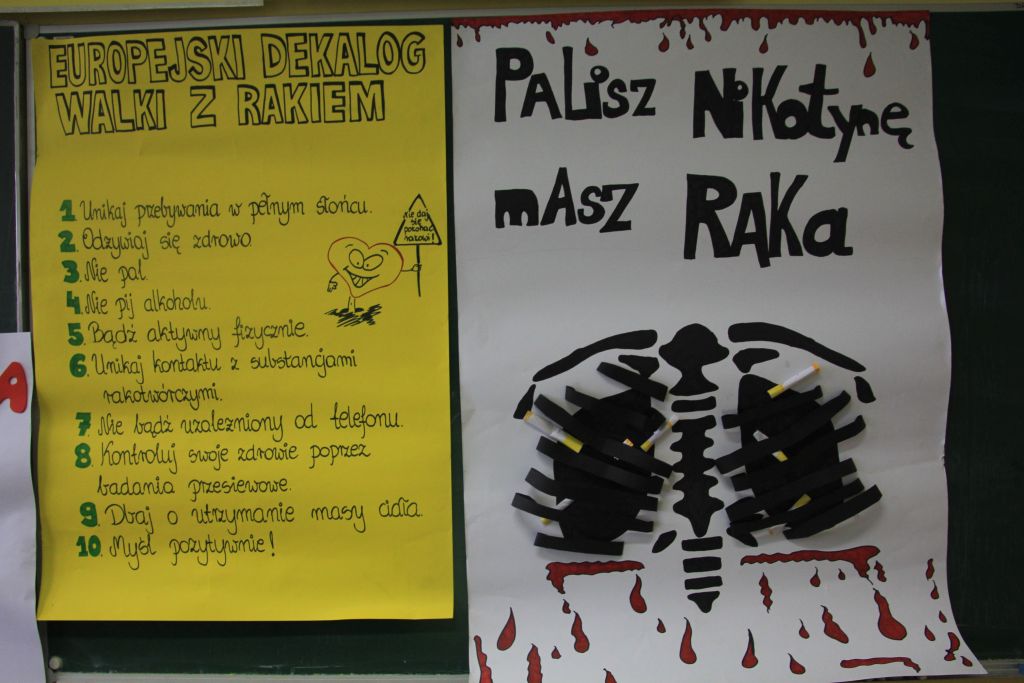 EUROPEJSKI DEKALOG
WALKI Z RAKIEM
1. Unikaj przebywania w pełnym słońcu.
2. Odzywiaj się zdrowo
3. Nie pal
4. Nie pij alkoholu.
5. Bądź aktywny fizycznie.
6. Unikaj kontaktu z substancjami
rakotwórczymi.
7. Nie bądź uzalezniony od telefonu.
8. Kontroluj swoje zdrowie poprzez
badania przesiewowe.
9. Dbaj o utrzymanie masy ciała.
10. Myśl pozytywnie!
nie daj
się
pokonać
rakowi!
PALisz NiKotynę
mAsz RAKa
A